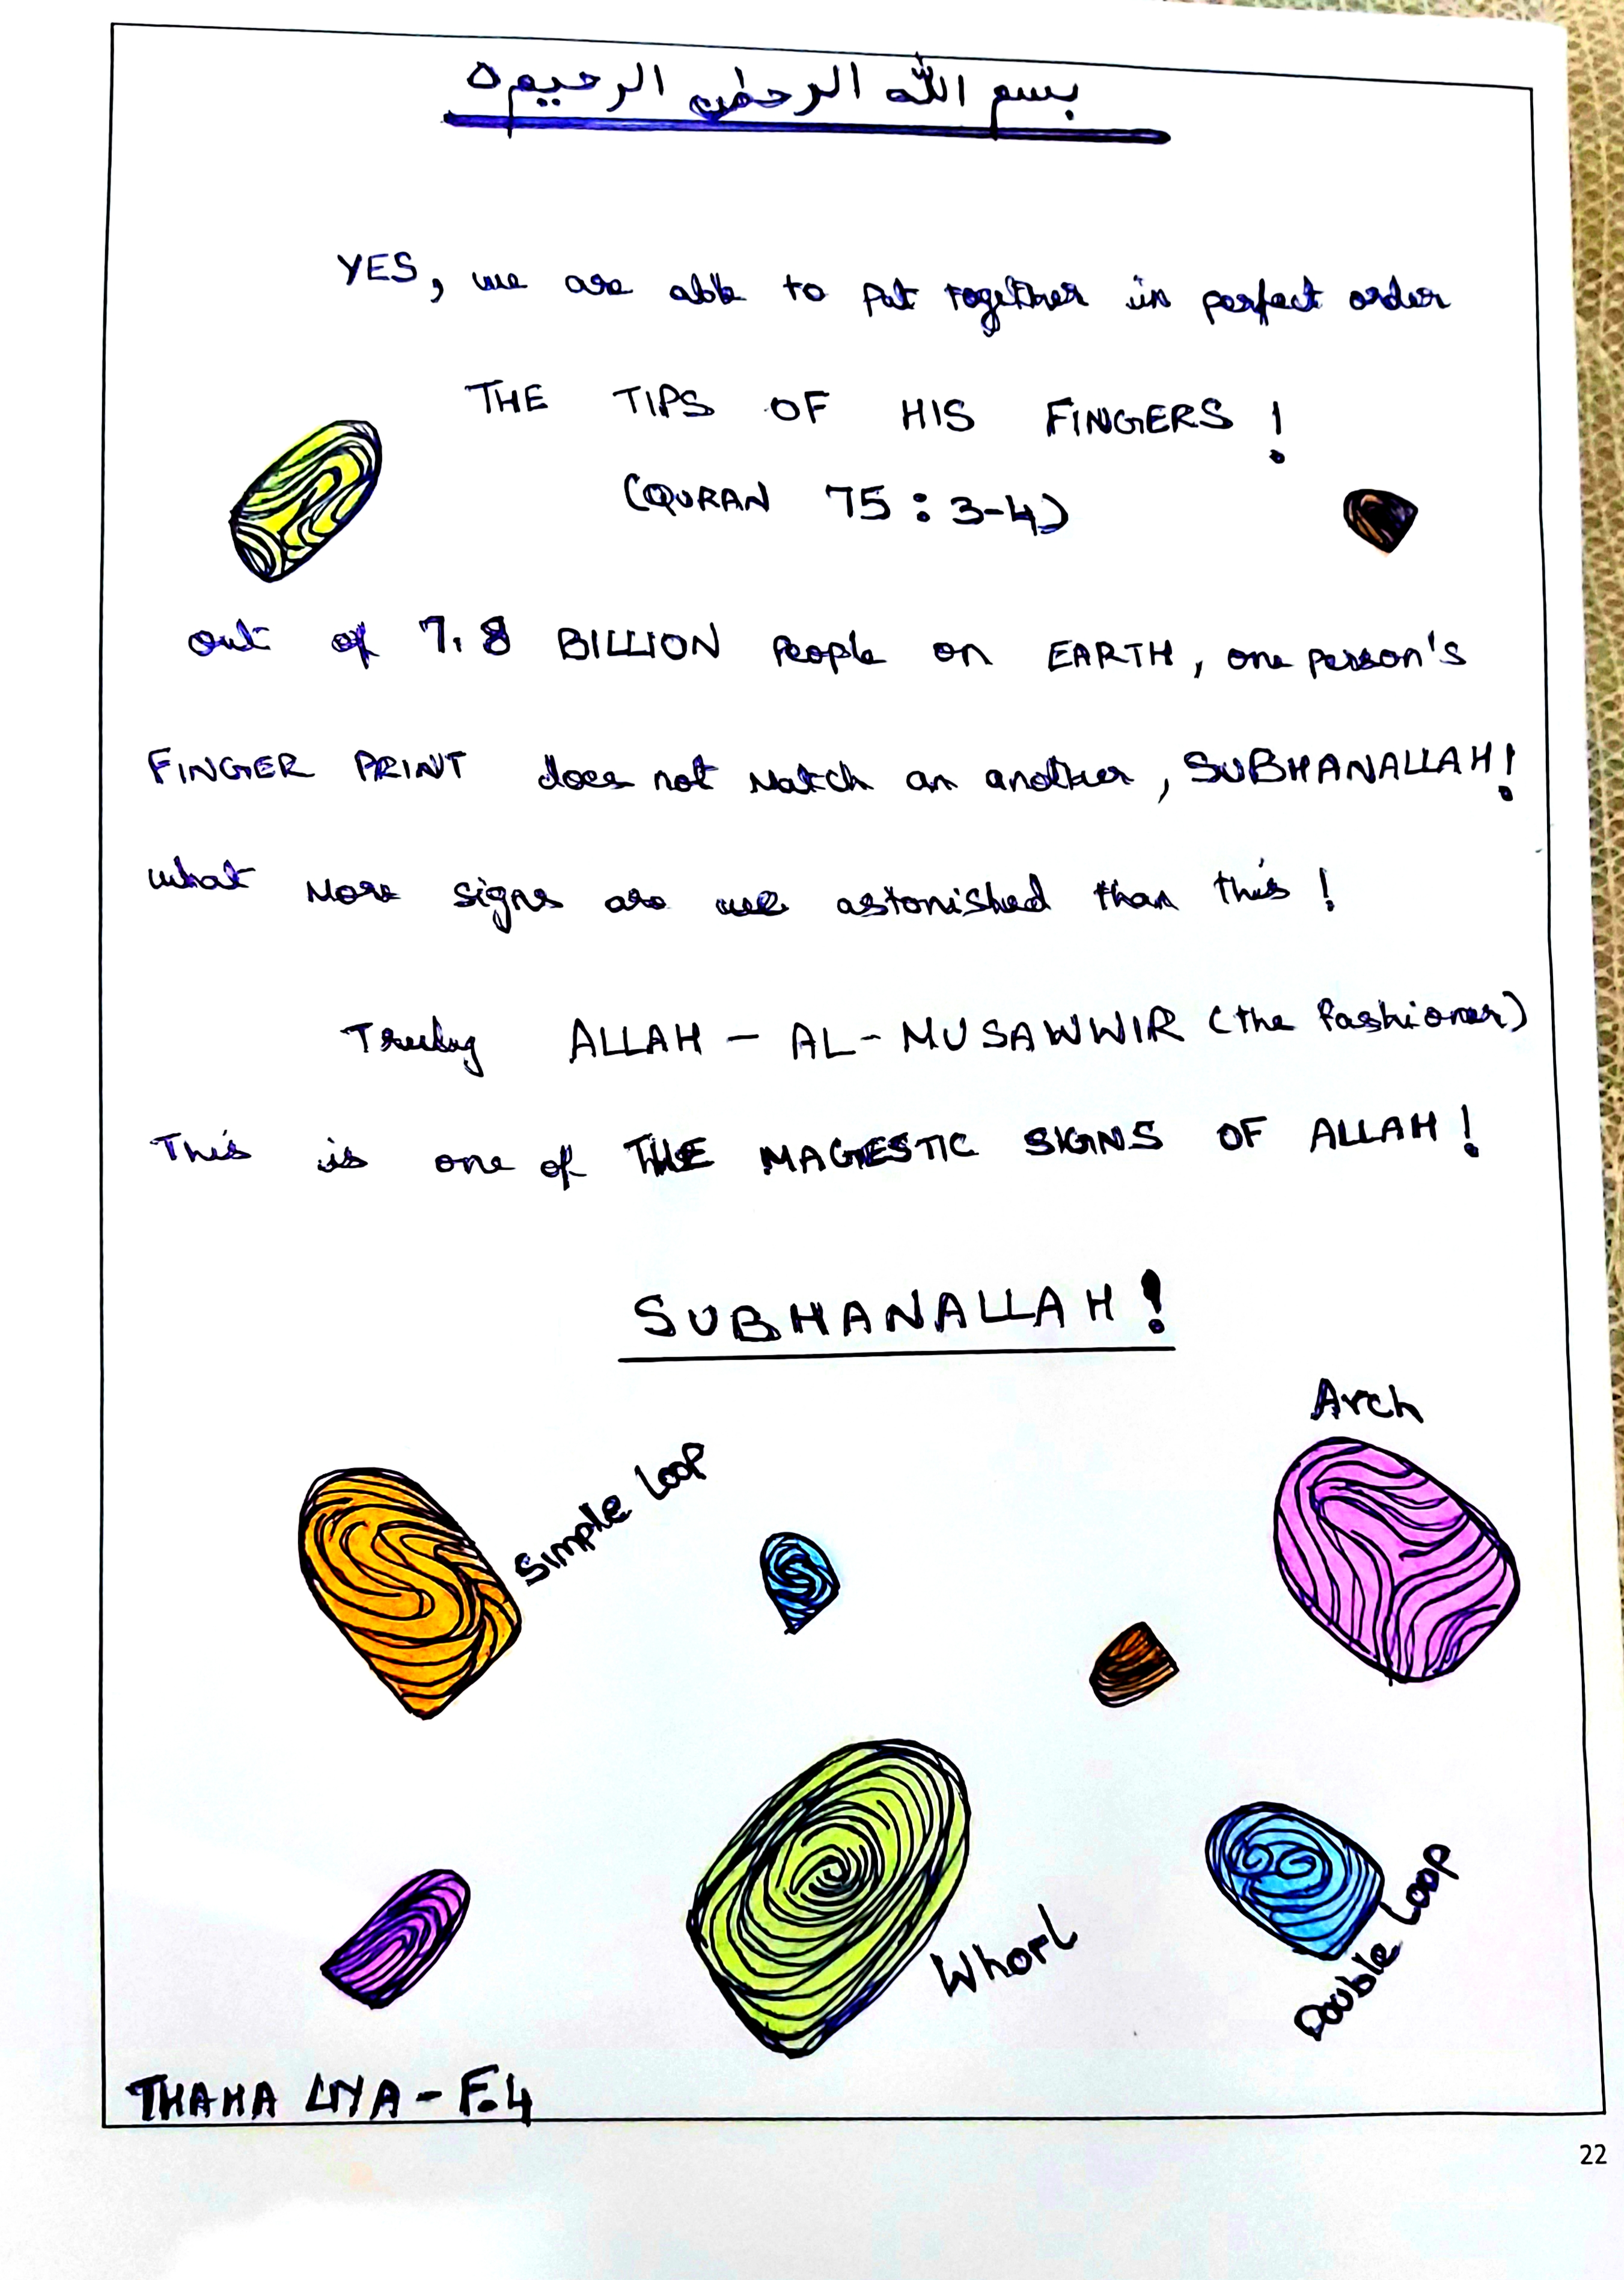 بسم الله الرحمٰن الرحيم
YES, we are able to put together in perfect order
THE TIPS OF HIS FINGERS!
(QURAN 75:3-4)
out of 7.8 BILLION People on EARTH, one person's
FINGER PRINT does not Match an another, SUBHANALLAH!
what More signs are we astonished than this!
Truly ALLAH - AL-MUSAWWIR (the fashioner)
This is one of THE MAGESTIC SIGNS OF ALLAH!
SUBHANALLAH!
Arch
Simple Loop
Whorl
Double Loop
THAHA LIYA - F.4
22